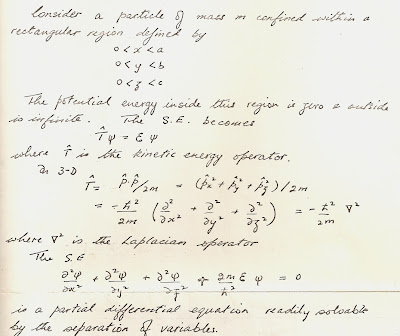 Consider a particle of mass m confined within a
rectangular region defined by
0 < x < a
0 < y < b
0 < z < c
The potential energy inside this region is zero & outside
is infinite. The S.E. becomes
T̂ψ = Eψ
where T̂ is the kinetic energy operator.
In 3-D
T̂ = p̂·p̂/2m = (p̂x² + p̂y² + p̂z²)/2m
= -ħ²/2m (∂²/∂x² + ∂²/∂y² + ∂²/∂z²) = -ħ²/2m ∇²
where ∇² is the Laplacian operator
The S.E
∂²ψ/∂x² + ∂²ψ/∂y² + ∂²ψ/∂z² + 2mE/ħ² ψ = 0
is a partial differential equation readily solvable
by the separation of variables.